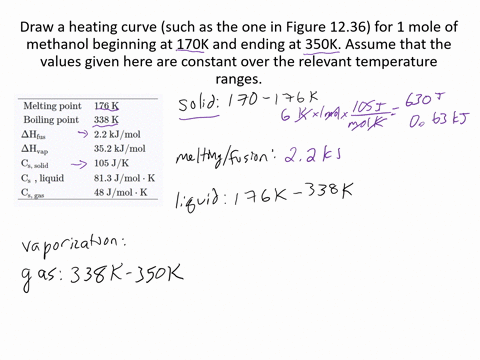 Draw a heating curve (such as the one in Figure 12.36) for 1 mole of
methanol beginning at 170K and ending at 350K. Assume that the
values given here are constant over the relevant temperature
ranges.
Melting point 176 K
Boiling point 338 K
ΔHfus → 2.2 kJ/mol
ΔHvap 35.2 kJ/mol
Cs, solid → 105 J/K
Cs , liquid 81.3 J/mol · K
Cs, gas 48 J/mol · K
solid: 170-176K
6 K × 1 mol × 105J / mol K = 630 J
0.63 kJ
melting/fusion: 2.2 kJ
liquid: 176K - 338K
vaporization:
gas: 338K-350K